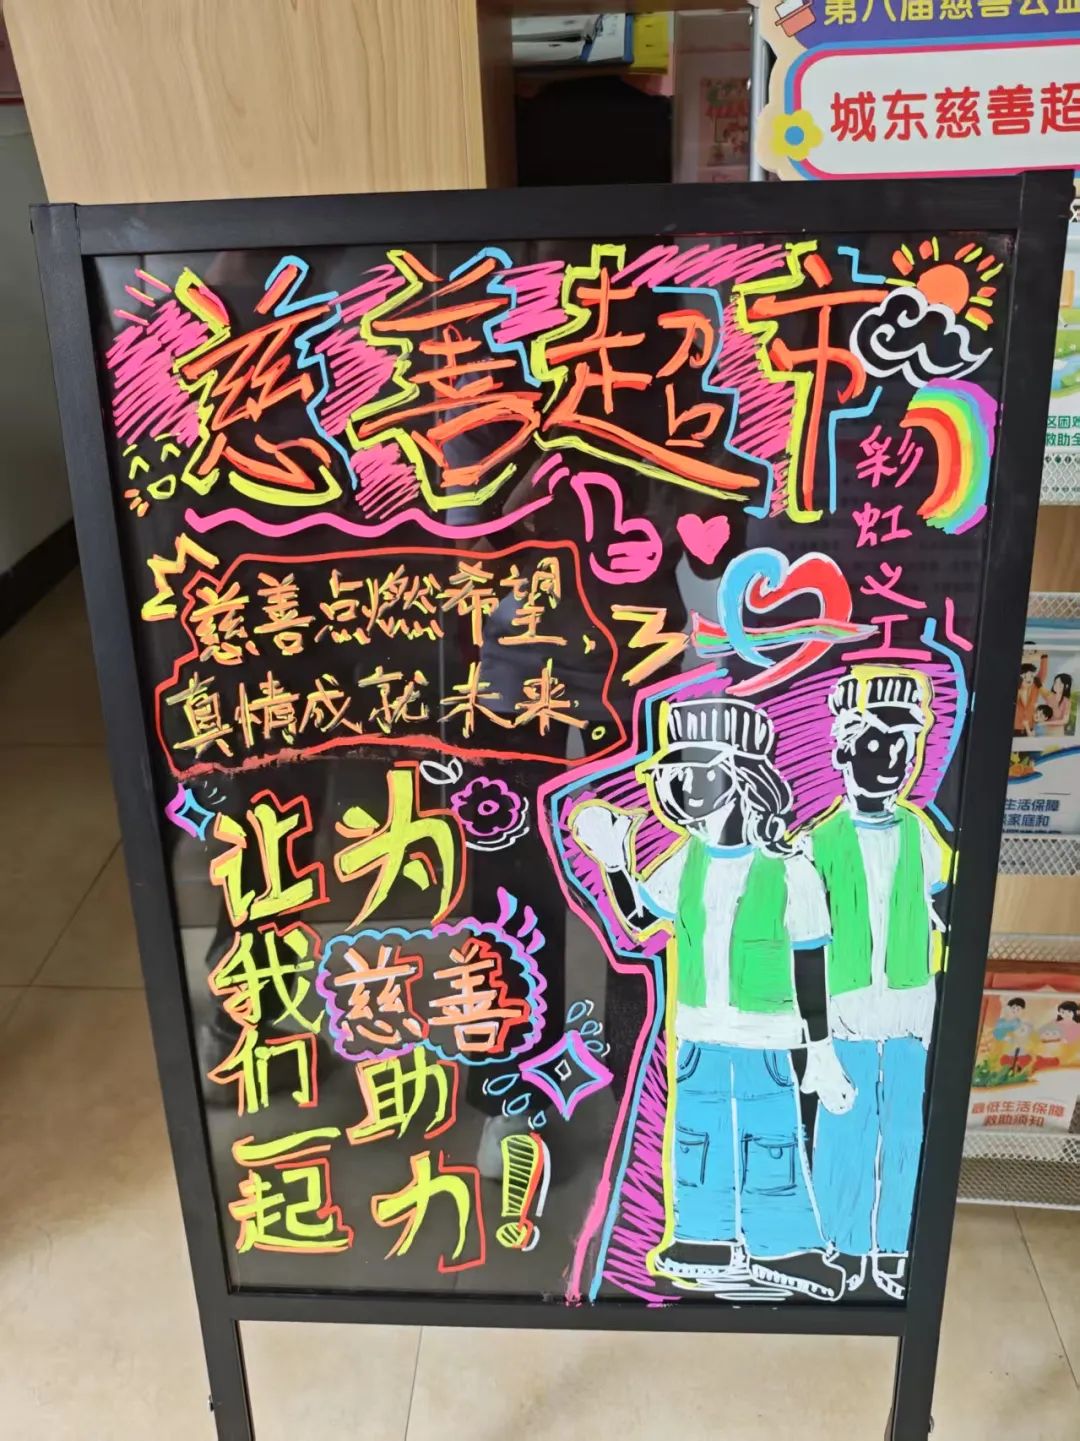 第八届慈善公益
城东慈善超
慈善超市
彩虹义工
慈善点燃希望,
真情成就未来。
让我们一起
为慈善助力!
生活保障
家庭和
最低生活保障
救助须知